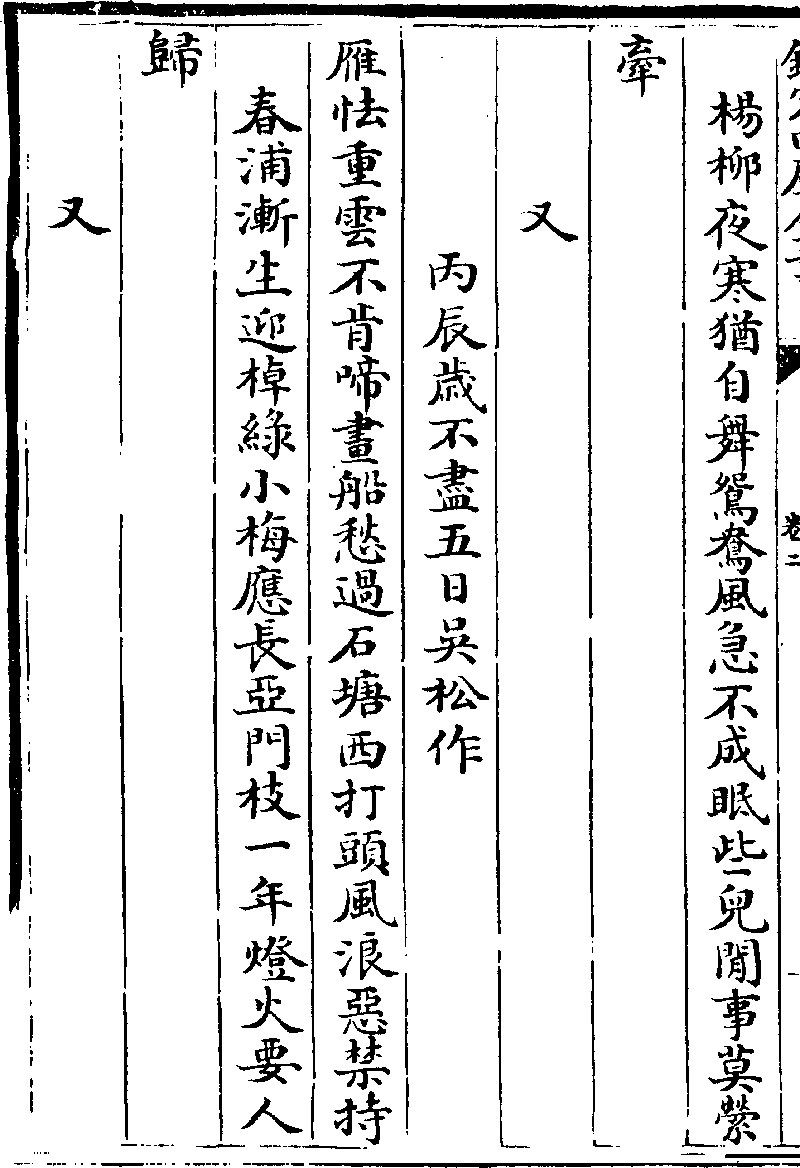 楊柳夜寒猶自舞鴛鴦風急不成眠些兒閒事莫縈
牽
又
丙辰歳不盡五日吳松作
雁怯重雲不肯啼畫船愁過石塘西打頭風浪惡禁持
春浦漸生迎棹綠小梅應長亞門枝一年燈火要人
歸
又
卷二